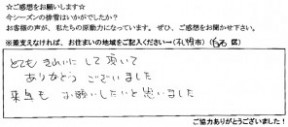 ☆ご感想をお願いします☆
今シーズンの接客はいかがでしたか?
お客様の声が、私たちの原動力になっています。ぜひ、ご感想をお聞かせ下さい。
※差支えなければ、お住まいの地域をご記入ください→(札幌市)(西区)
とても きれいに して 頂いて
ありがとう ございました
来年も お願いしたいと思いました
ご協力ありがとうございました!